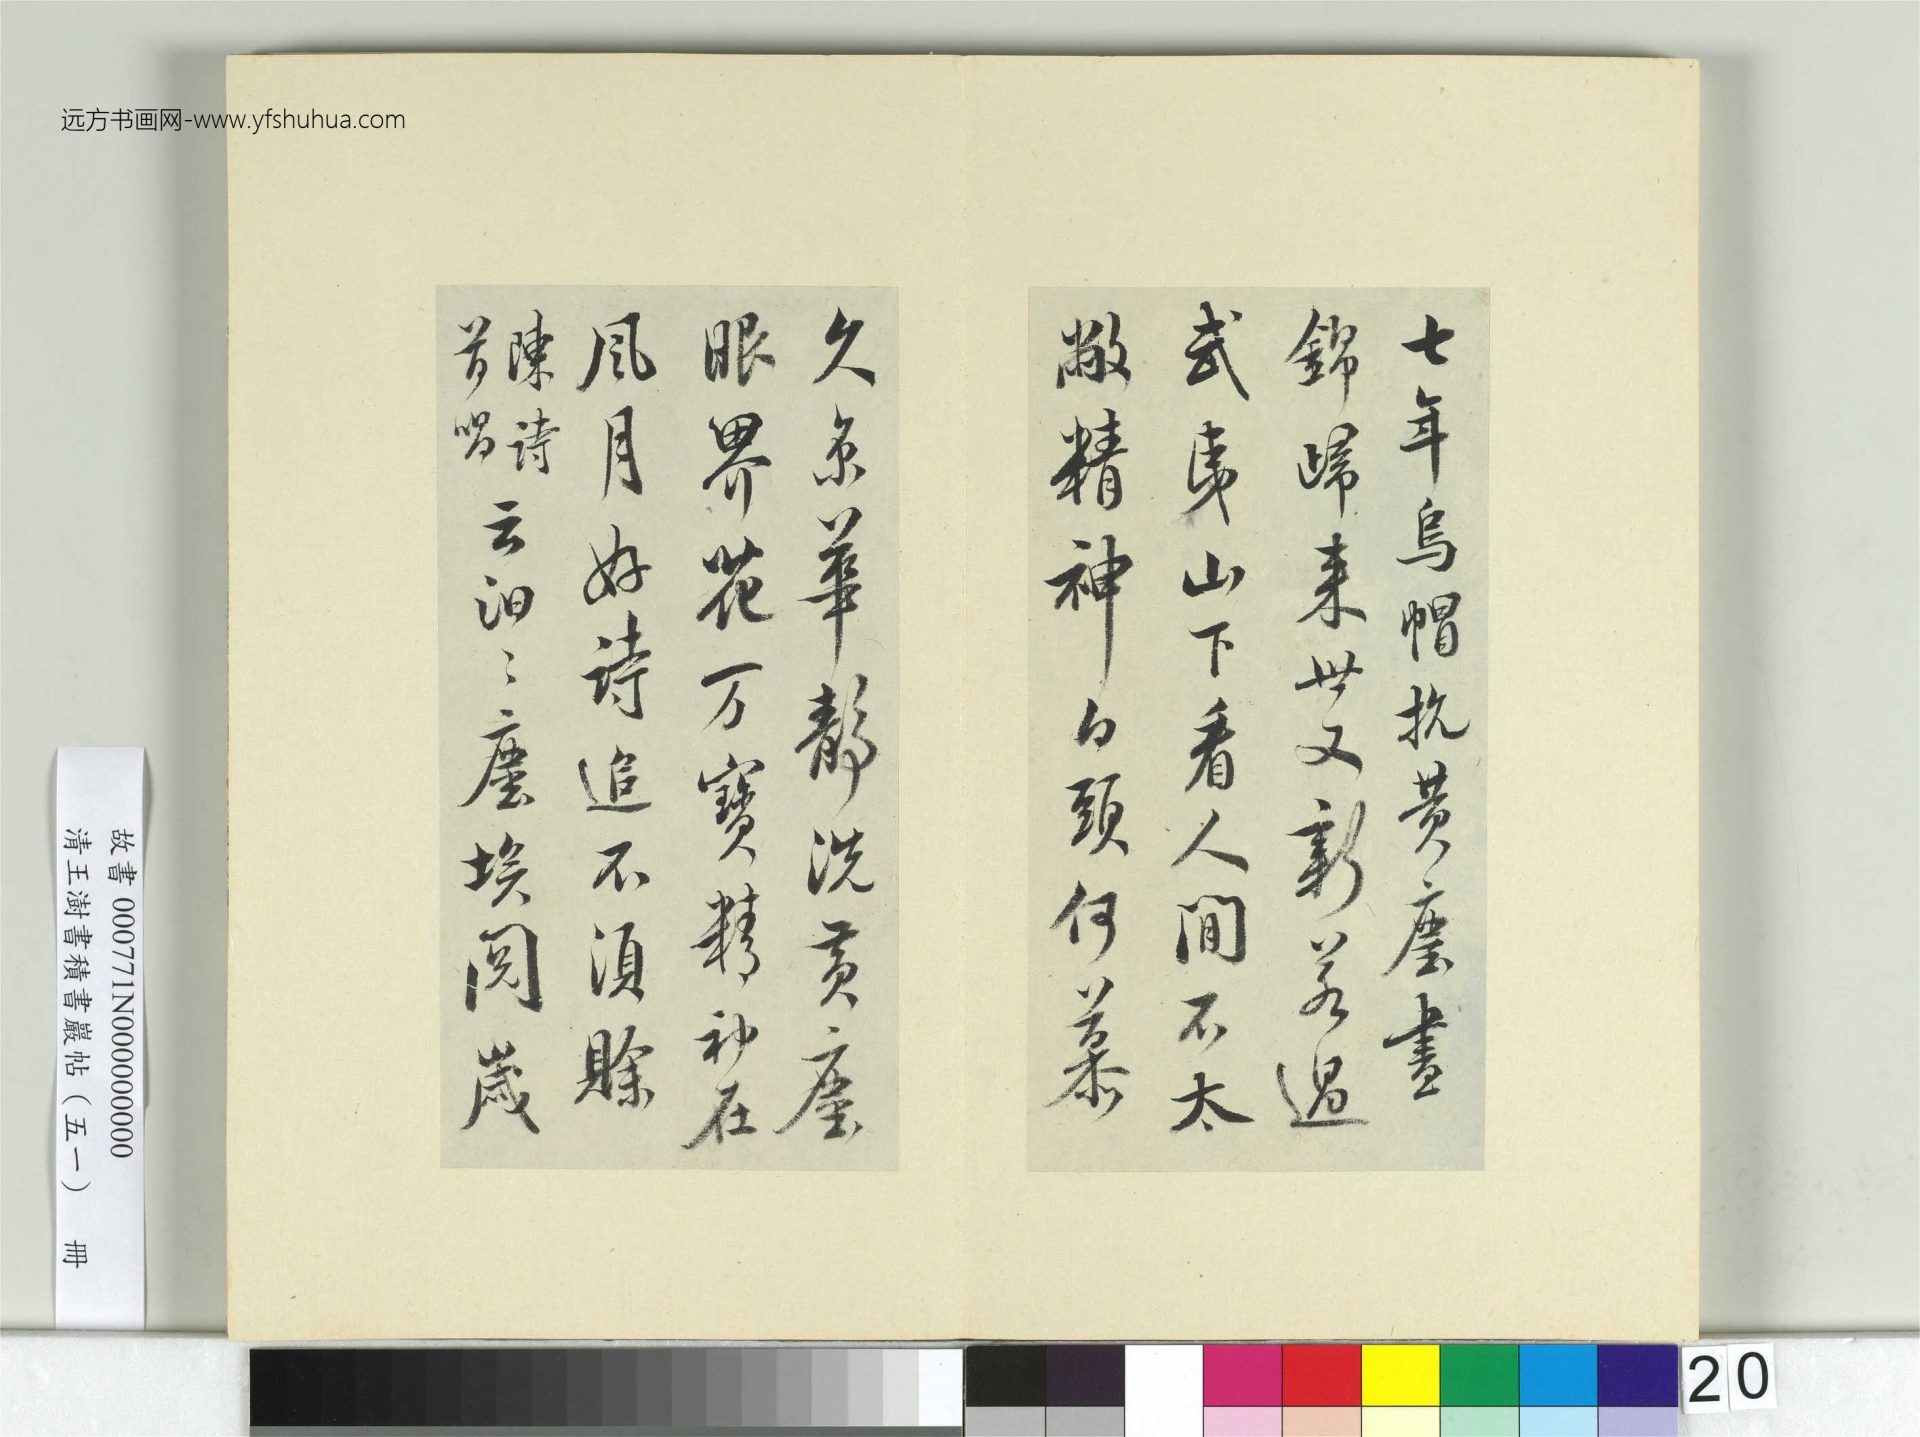 远方书画网-www.yfshuhua.com
七年烏帽抗黄塵晝
錦歸来世又新若過
武夷山下看人間不太
敝精神白頭何慕
久京華静洗黄塵
眼界花万寶精神在
風月好詩追不須賒
陳詩
首唱
云汩〻塵埃閲歲
故書 000771N000000000
清王澍書積書巖帖（五一） 冊
20